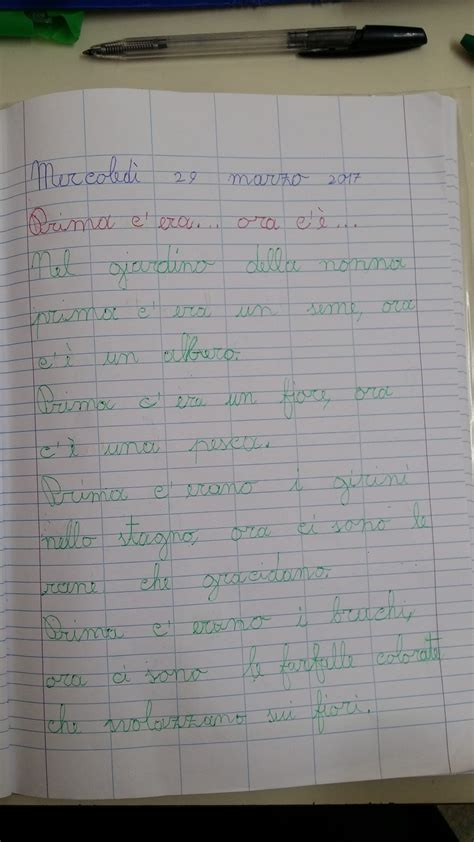 Mercoledì 29 marzo 2017
Prima c'era... ora c'è...
Nel giardino della nonna
prima c'era un seme, ora
c'è un albero.
Prima c'era un fiore, ora
c'è una pesca.
Prima c'erano i girini
nello stagno, ora ci sono le
rane che gracidano.
Prima c'erano i bruchi,
ora ci sono le farfalle colorate
che svolazzano sui fiori.